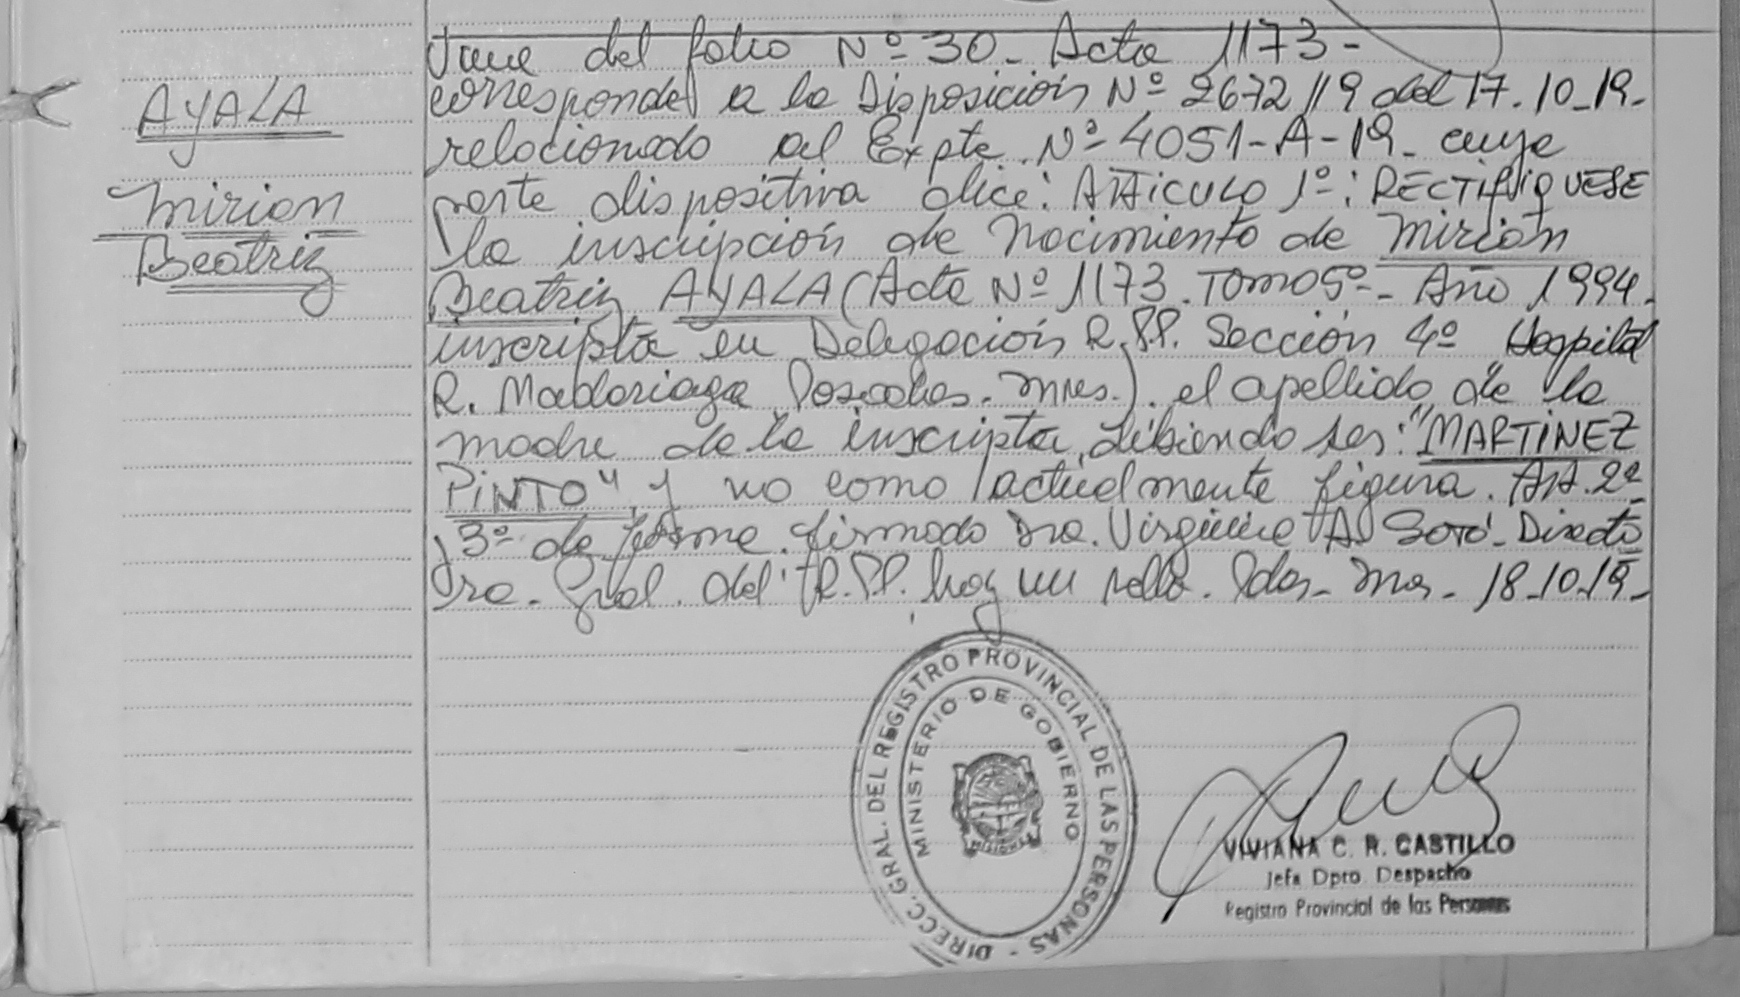 AYALA
Mirian
Beatriz
Viene del folio Nº 30 - Acta 1173 -
corresponde a la Disposición Nº 2672/19 del 17.10.19.
relacionado al Expte. Nº 4051-A-19. cuya
parte dispositiva dice: ARTICULO 1º: RECTIFIQUESE
la inscripción de Nacimiento de Mirian
Beatriz AYALA (Acta Nº 1173. Tomo 5º - Año 1994.
inscripta en Delegación R.P.P. Sección 4º Hospital
R. Madariaga Posadas. Mnes.). el apellido de la
madre de la inscripta, debiendo ser: "MARTINEZ
PINTO" y no como actualmente figura. Art. 2º
3º de forma. firmado Dra. Virginia A. Directo
ra. Gral. del R.P.P. hay un sello. Pdas. Mnes. 18.10.19.
DIRECC. GRAL. DEL REGISTRO PROVINCIAL DE LAS PERSONAS -
MINISTERIO DE GOBIERNO
MISIONES
VIVIANA C. R. CASTILLO
Jefa Dpto. Despacho
Registro Provincial de las Personas